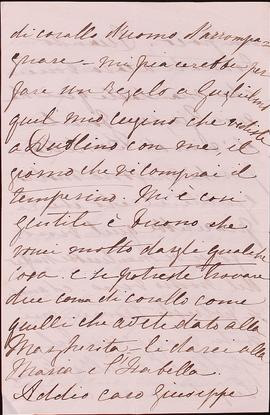 di corallo d'uomo d'accompa=
gnare – mi piacerebbe per
fare un regalo a Guglielmo
quel mio cugino che vedeste
a Dublino con me, il
giorno che vi comprai il
temperino. Mi è così
gentile è buono che
vorrei molto dargli qualche
cosa. e se potreste trovare
due corna di corallo come
quelli che avete dato alla
Margherita – li darei alla
Maria e l'Isabella.
Addio caro Giuseppe